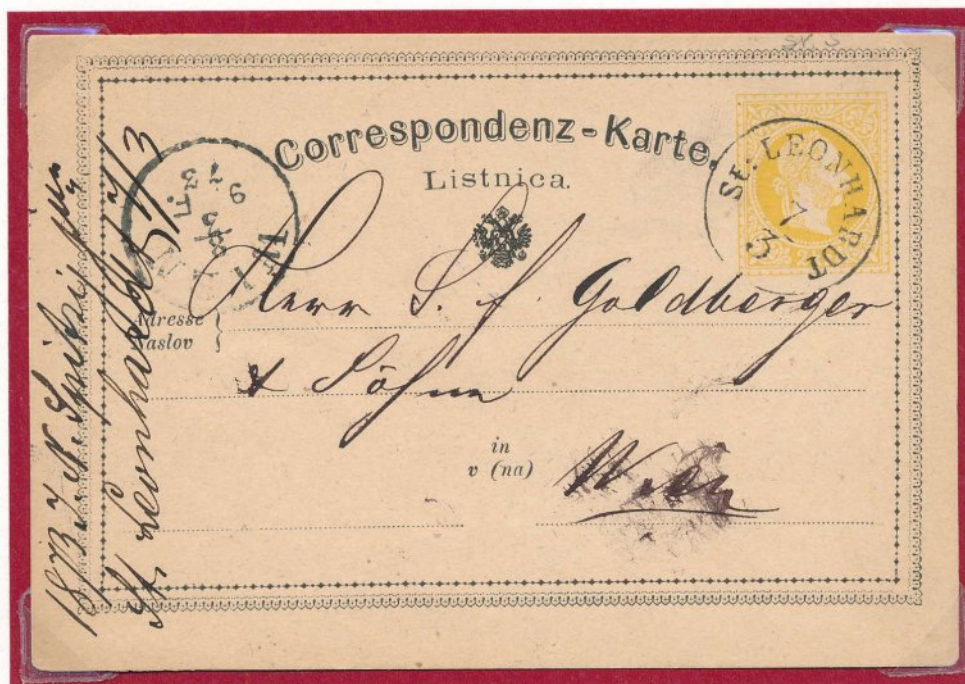 Correspondenz-Karte.
Listnica.
St: LEONHARDT
7
3
WIEN
9
3
73
Adresse
Naslov
Herr S. f. Goldberger
& Söhne
in
v (na)
Wien
1873
St. Leonhardt 7/3